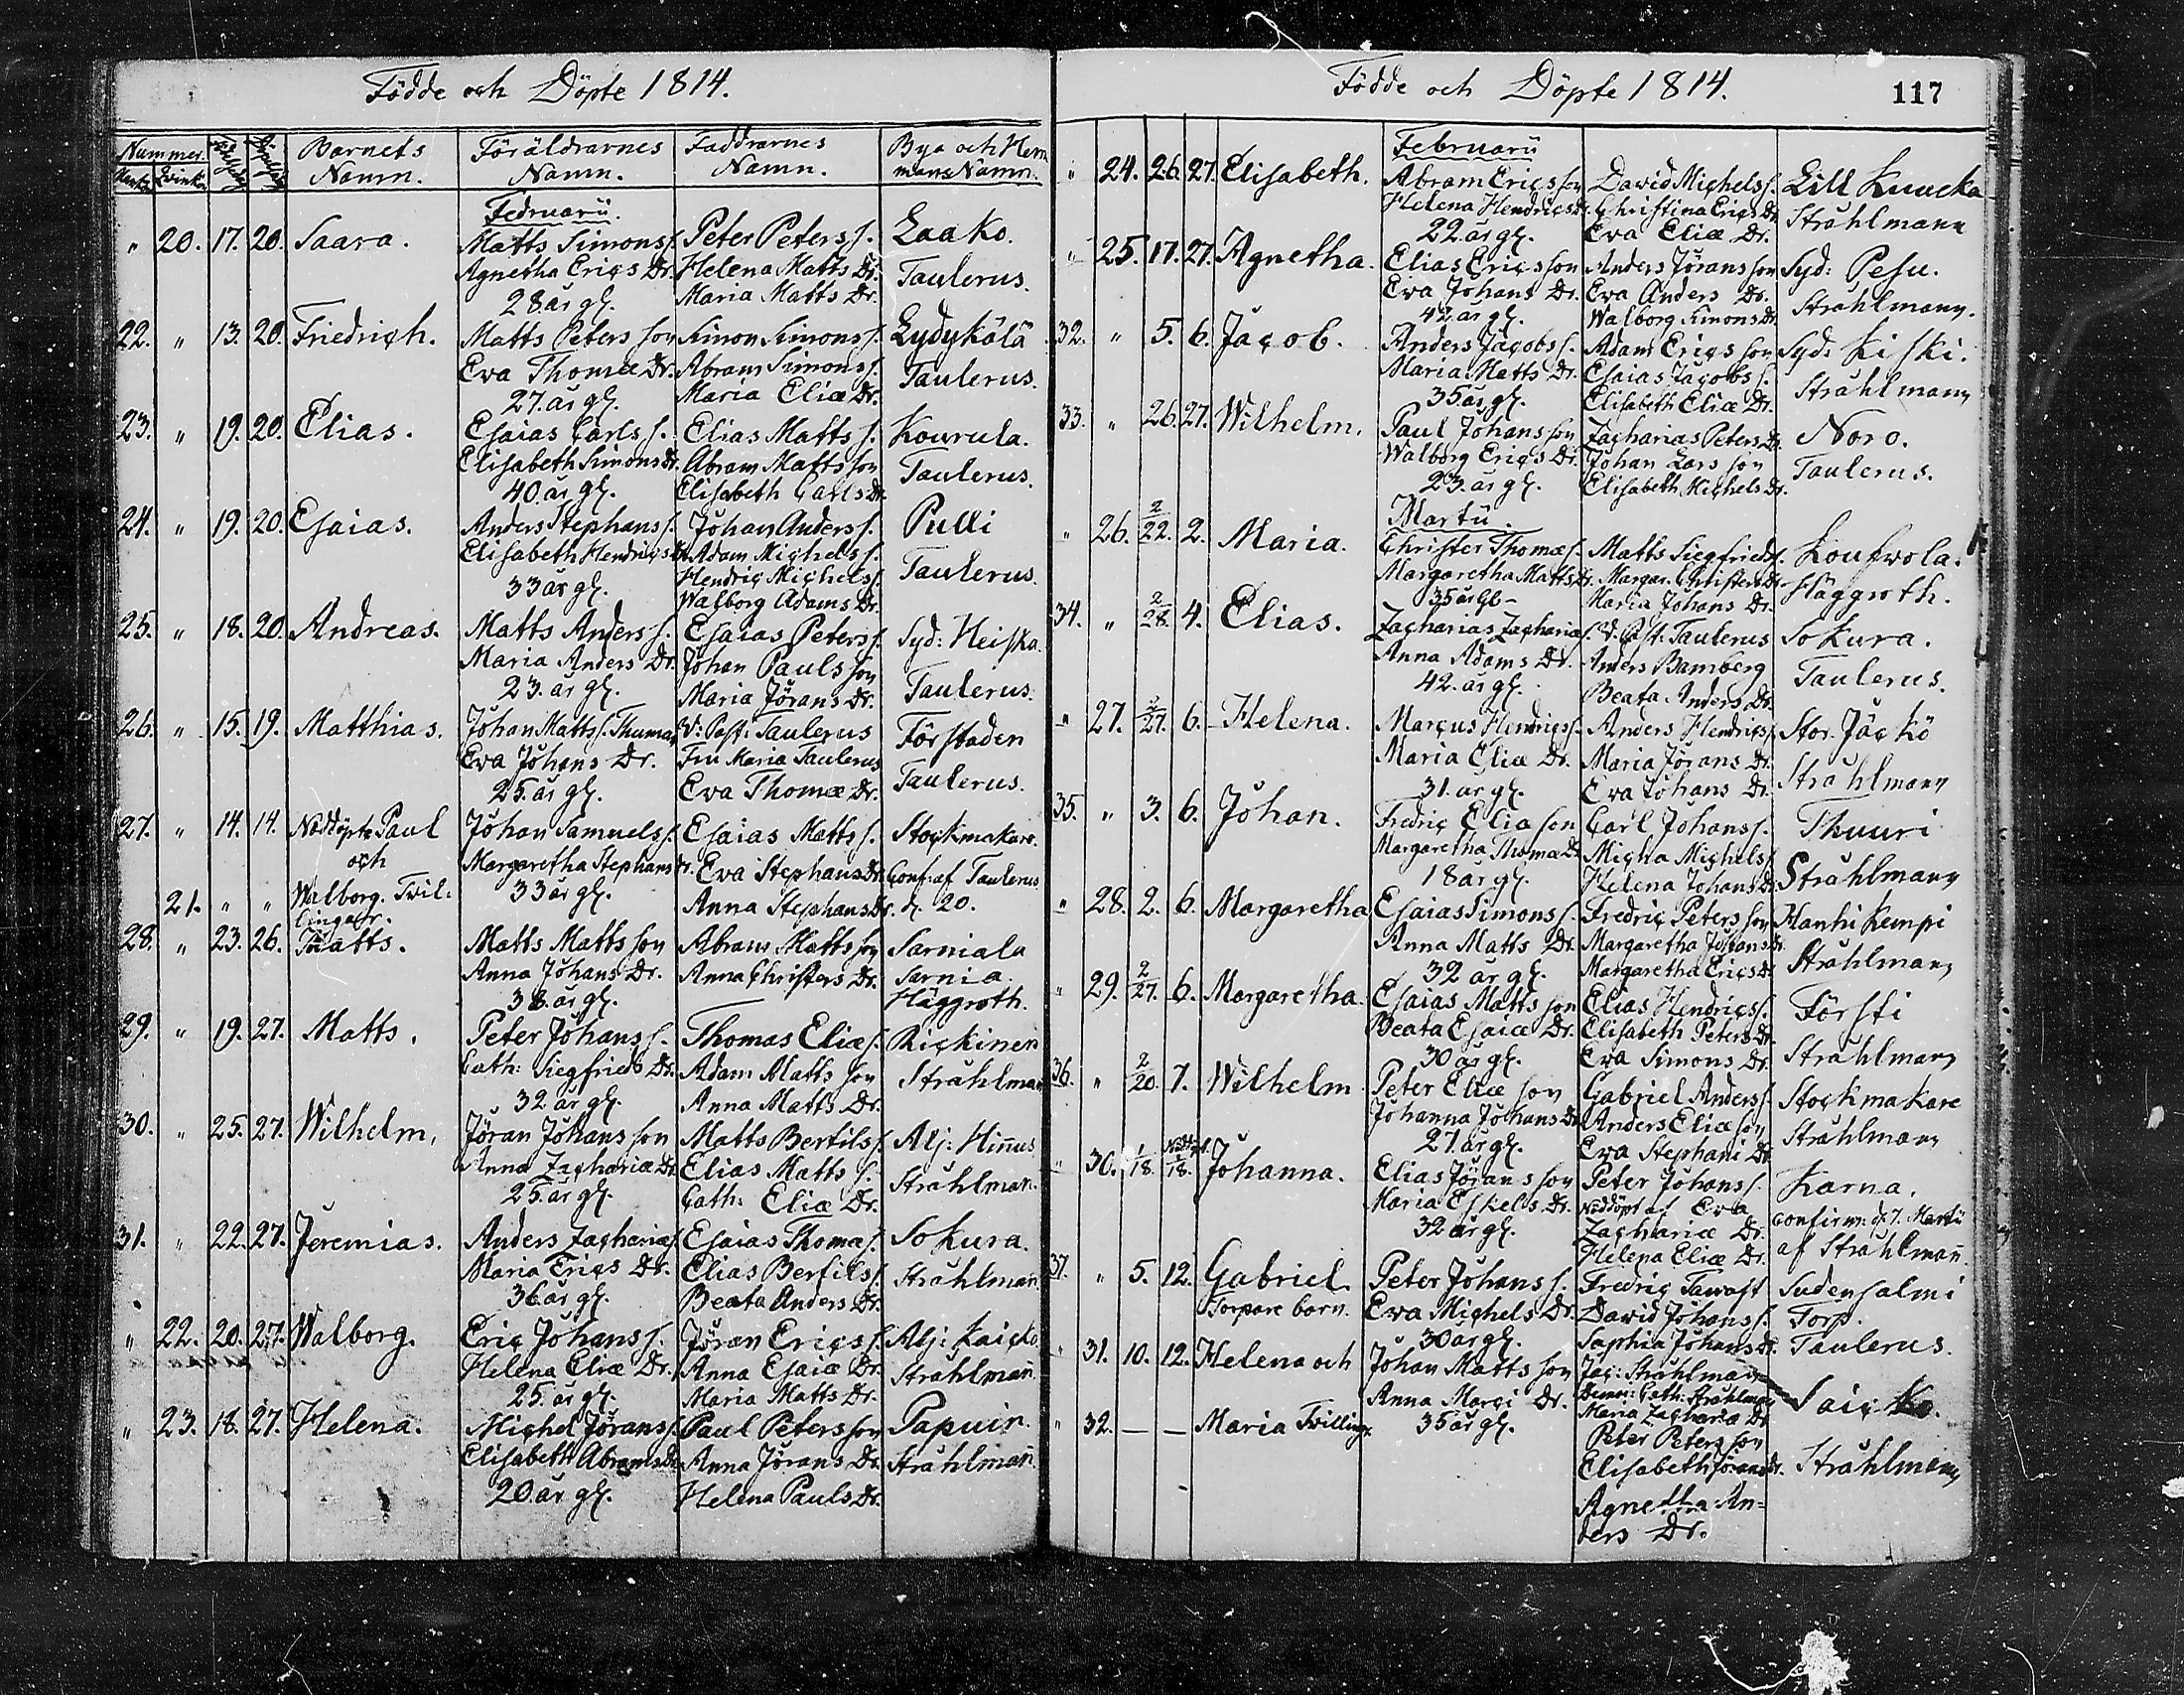 Födde och Döpte 1814.
Nummer.
Barnets Namn.
Föräldrarnes Namn.
Faddrarnes Namn.
Bya och Hemmans Namn.
Februarii.
" 20. 17. 20. Saara. Matts Simons s. Peter Peters s. Laako.
Agnetha Erics Dr. Helena Matts Dr. Taulerus.
28 år gl. Maria Matts Dr.
22. " 13. 20. Friedrich. Matts Peters son Simon Simons s. Lydykölä
Eva Thomæ Dr. Abram Simons s. Taulerus.
27. år gl. Maria Eliæ Dr.
23. " 19. 20. Elias. Esaias Carls s. Elias Matts s. Kourula.
Elisabeth Simons Dr. Abram Matts son Taulerus.
40. år gl. Elisabeth Carls Dr.
24. " 19. 20. Esaias. Anders Stephans s. Johan Anders s. Pulli
Elisabeth Hendrics Dr. Adam Michels s.
Hendric Michels s. Taulerus.
33 år gl. Walborg Adams Dr.
25. " 18. 20. Andreas. Matts Anders s. Esaias Peters s. Syd: Heiska.
Maria Anders Dr. Johan Pauls son
23. år gl. Maria Jörans Dr. Taulerus.
26. " 15. 19. Matthias. Johan Matts s. Thumas V: Past: Taulerus Förstaden
Eva Johans Dr. Fru Maria Taulerus
25. år gl. Eva Thomæ Dr. Taulerus.
27. " 14. 14. Nöddöpte Paul Johan Samuels s. Esaias Matts s. Stockmakare.
och Margaretha Stephans Dr. Eva Stephans Dr. Conf: af Taulerus
21. " " Walborg. Tvillingar. 33 år gl. Anna Stephans Dr. d. 20.
28. " 23. 26. Matts. Matts Matts son Abram Matts son Sarniala
Anna Johans Dr. Anna Christers Dr. Sarnia.
38. år gl. Häggroth.
29. " 19. 27. Matts. Peter Johans s. Thomas Eliæ s. Rickinen
Cath: Siegfrieds Dr. Adam Matts son Stråhlman
32 år gl. Anna Matts Dr.
30. " 25. 27. Wilhelm, Jöran Johans son Matts Bertils s. Alj: Hinus
Anna Zachariæ Dr. Elias Matts s. Stråhlman.
25. år gl. Cath: Eliæ Dr.
31. " 22. 27. Jeremias. Anders Zacharias s. Esaias Thomæ s. Sokura.
Maria Erics Dr. Elias Bertils s. Stråhlman.
36. år gl. Beata Anders Dr.
" 22. 20. 27. Walborg. Eric Johans s. Jöran Erics s. Alj: Kaicko
Helena Eliæ Dr. Anna Esaiæ Dr. Stråhlman.
25. år gl. Maria Matts Dr.
" 23. 18. 27. Helena. Michel Jörans s. Paul Peters son Papuin.
Elisabeth Abrams Dr. Anna Jörans Dr. Stråhlman.
20. år gl. Helena Pauls Dr.
Födde och Döpte 1814.
117
Februarii
" 24. 26. 27. Elisabeth. Abram Erics son David Michels s. Lill Knucka
Helena Hendrics Dr. Christina Erics Dr. Stråhlmann
22. år gl. Eva Eliæ Dr.
" 25. 17. 27. Agnetha. Elias Erics son Anders Jörans son Syd: Pesu.
Eva Johans Dr. Eva Anders Dr. Stråhlmann.
42. år gl. Walborg Simons Dr.
32. " 5. 6. Jacob. Anders Jacobs s. Adam Erics son Syd: Kiski.
Maria Matts Dr. Esaias Jacobs s. Stråhlmann
35 år gl. Elisabeth Eliæ Dr.
33. " 26. 27. Wilhelm. Paul Johans son Zacharias Peters Dr. Noro.
Walborg Erics Dr. Johan Lars son Taulerus.
23. år gl. Elisabeth Michels Dr.
Martii.
" 26. 2/22. 2. Maria. Christer Thomæ s. Matts Siegfrieds s. Koufwola.
Margaretha Matts Dr. Margar. Christers Dr. Häggroth.
35 år Gl- Maria Johans Dr.
34. " 2/28. 4. Elias. Zacharias Zacharias s. V. Past. Taulerus Sokura.
Anna Adams Dr. Anders Bamberg Taulerus.
42. år gl. Beata Anders Dr.
" 27. 2/27. 6. Helena. Marcus Hendrics s. Anders Hendrics s. Stor. Jäckö
Maria Eliæ Dr. Maria Jörans Dr.
31. år gl. Eva Johans Dr. Stråhlmann
35. " 3. 6. Johan. Fredric Eliæ son Carl Johans s. Thuuri
Margaretha Thomæ Dr. Micha Michels s.
18 år gl. Helena Johans Dr. Stråhlmann
" 28. 2. 6. Margaretha Esaias Simons s. Fredric Peters son Hanhi Kempi
Anna Matts Dr. Margaretha Johans Dr.
32 år gl. Margaretha Erics Dr. Stråhlmann
" 29. 2/27. 6. Margaretha. Esaias Matts son Elias Hendrics s. Försti
Beata Esaiæ Dr. Elisabeth Peters Dr.
30 år gl. Eva Simons Dr. Stråhlmann
36. " 2/20. 7. Wilhelm Peter Eliæ son Gabriel Anders s. Stockmakare
Johanna Johans Dr. Anders Eliæ son Stråhlmann
27. år gl. Eva Stephani Dr.
" 30. 1/18. Nöddöpt 1/18. Johanna. Elias Jörans son Peter Johans s. Karna.
Maria Eskels Dr. Nöddöpt af Eva confirm: d. 7. Martii
32 år gl. Zachariæ Dr. af Stråhlman.
Helena Eliæ Dr.
37. " 5. 12. Gabriel Peter Johans s. Fredric Tawast Sudensalmi
Torpare barn. Eva Michels Dr. David Johans s. Torp.
30 år gl. Saphia Johans Dr. Taulerus.
" 31. 10. 12. Helena och Johan Matts son Jac: Stråhlman
Anna Marci Dr. Demois: Cath: Stråhlman Saicko.
Maria Zachariæ Dr.
" 32. — — Maria Tvillingr. 35 år gl. Peter Peters son
Elisabeth Jörans Dr. Stråhlmann
Agnetha An-
ders Dr.